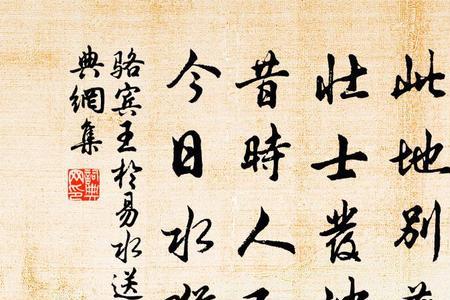 此地别
壮士發
昔時人
今日水
骆宾王於易水送
典網集